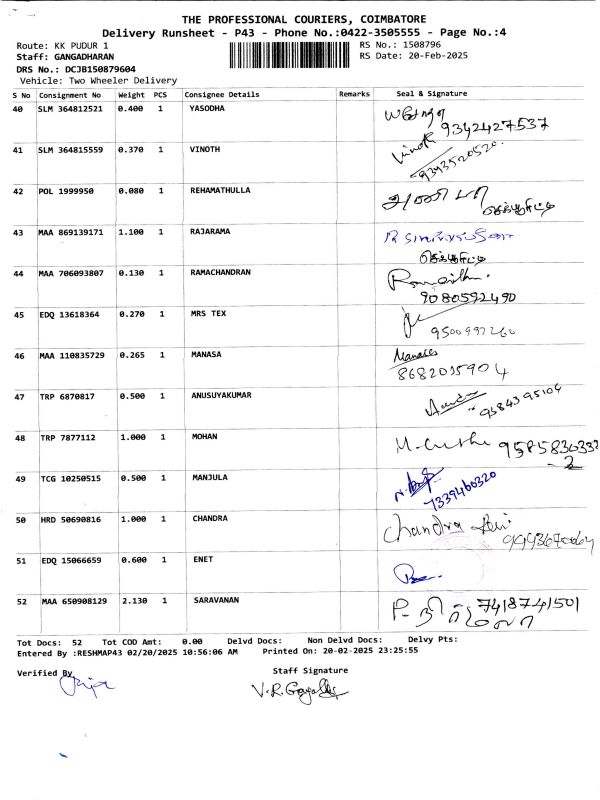 THE PROFESSIONAL COURIERS, COIMBATORE
Delivery Runsheet - P43 - Phone No.:0422-3505555 - Page No.:4
Route: KK PUDUR 1
RS No.: 1508796
Staff: GANGADHARAN
RS Date: 20-Feb-2025
DRS No.: DCJB150879604
Vehicle: Two Wheeler Delivery
S No Consignment No Weight PCS Consignee Details Remarks Seal & Signature
40 SLM 364812521 0.400 1 YASODHA
9342427537
41 SLM 364815559 0.370 1 VINOTH Vinoth
9393520520
42 POL 1999950 0.080 1 REHAMATHULLA
செக்யூரிட்டி
43 MAA 869139171 1.100 1 RAJARAMA
செக்யூரிட்டி
44 MAA 706093807 0.130 1 RAMACHANDRAN
9080592490
45 EDQ 13618364 0.270 1 MRS TEX
9500997260
46 MAA 110835729 0.265 1 MANASA
8682015904
47 TRP 6870817 0.500 1 ANUSUYAKUMAR
9384395104
48 TRP 7877112 1.000 1 MOHAN
49 TCG 10250515 0.500 1 MANJULA
7339460320
50 HRD 50690816 1.000 1 CHANDRA Chandra
51 EDQ 15066659 0.600 1 ENET
52 MAA 650908129 2.130 1 SARAVANAN
7418741501
Tot Docs: 52 Tot COD Amt: 0.00 Delvd Docs: Non Delvd Docs: Delvy Pts:
Entered By :RESHMAP43 02/20/2025 10:56:06 AM Printed On: 20-02-2025 23:25:55
Verified By
Staff Signature